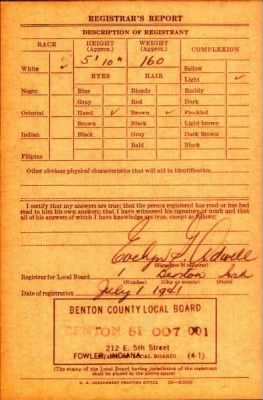 REGISTRAR'S REPORT
DESCRIPTION OF REGISTRANT
RACE HEIGHT (Approx.) WEIGHT (Approx.) COMPLEXION
White ✓ 5' 10" 160 Sallow
EYES HAIR Light ✓
Negro Blue Blonde Ruddy
Gray Red Dark
Oriental Hazel ✓ Brown ✓ Freckled
Brown Black Light brown
Indian Black Gray Dark brown
Bald Black
Filipino
Other obvious physical characteristics that will aid in identification
I certify that my answers are true; that the person registered has read or has had
read to him his own answers; that I have witnessed his signature or mark and that
all of his answers of which I have knowledge are true, except as follows:
Evelyn
(Signature of registrar)
Registrar for Local Board 1 Benton Ind
(Number) (City or county) (State)
Date of registration July 1 1941
BENTON COUNTY LOCAL BOARD
BENTON 61 007 001
212 E. 5th Street
FOWLER, INDIANA
LOCAL BOARD) (4-1)
(The stamp of the Local Board having jurisdiction of the registrant
shall be placed in the above space)
U. S. GOVERNMENT PRINTING OFFICE